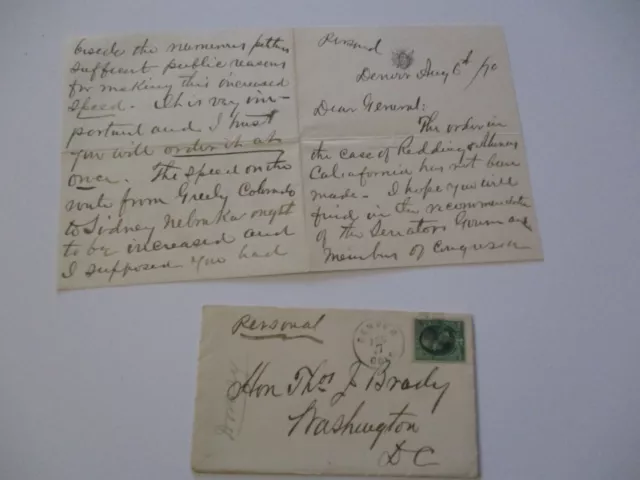 Personal
Denver Aug 6th /70
Dear General:
The order in
the case of Redding & Alturas
California has not been
made. I hope you will
find in the recommendation
of the Senators Governor and
Members of Congress on
beside the numerous petitions
sufficient public reasons
for making this increased
speed. This is very im-
portant and I trust
you will order it at
once. The speed on the
route from Greely Colorado
to Sidney Nebraska ought
to be increased and
I supposed you had
Personal
DENVER
COLO
Hon Thos J Brady
Washington
DC